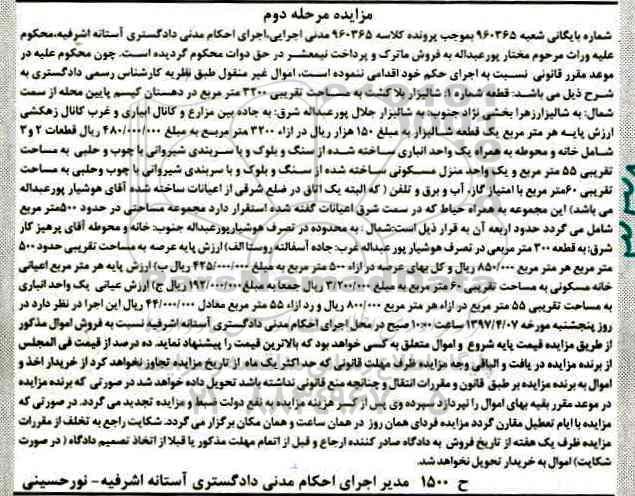 مزایده مرحله دوم
شماره بایگانی شعبه ۹۶۰۳۶۵ بموجب پرونده کلاسه ۹۶۰۳۶۵ مدنی اجرایی،اجرای احکام مدنی دادگستری آستانه اشرفیه،محکوم
علیه وراث مرحوم مختار پورعبداله به فروش ماترک و پرداخت نیمعشر در حق دولت محکوم گردیده است. چون محکوم علیه در
موعد مقرر قانونی نسبت به اجرای حکم خود اقدامی ننموده است، اموال غیر منقول طبق نظریه کارشناس رسمی دادگستری به
شرح ذیل می باشد: قطعه شماره ۱: شالیزار بلا کشت به مساحت تقریبی ۳۲۰۰ متر مربع در دهستان کیسم پایین محله از سمت
شمال: به شالیزارزهرا بخشی نژاد جنوب: به شالیزار جلال پورعبداله شرق: به جاده بین مزارع و کانال ابیاری و غرب کانال زهکشی
ارزش پایه هر متر مربع یک قطعه شالیزار به مبلغ ۱۵۰ هزار ریال در ازاء ۳۲۰۰ متر مربع به مبلغ ۴۸۰/۰۰۰/۰۰۰ ریال قطعات ۲ و۳
شامل خانه و محوطه به همراه یک واحد انباری ساخته شده از سنگ و بلوک و با سربندی شیروانی با چوب و حلبی به مساحت
تقریبی ۵۵ متر مربع و یک واحد منزل مسکونی ساخته شده از سنگ و بلوک و با سربندی شیروانی با چوب وحلبی به مساحت
تقریبی ۶۰متر مربع با امتیاز گاز، آب و برق و تلفن ( که البته یک اتاق در ضلع شرقی از اعیانات ساخته شده آقای هوشیار پورعبداله
می باشد) این مجموعه به همراه حیاط که در سمت شرق اعیانات گفته شده استقرار دارد مجموعه مساحتی در حدود ۵۰۰متر مربع
شامل می گردد حدود اربعه آن به قرار ذیل است:شمال : به محدوده در تصرف هوشیارپورعبداله جنوب: خانه و محوطه آقای پرهیز کار
شرق:به قطعه ۳۰۰ متر مربعی در تصرف هوشیار پور عبداله غرب: جاده آسفالته روستا الف) ارزش پایه عرصه به مساحت تقریبی حدود ۵۰۰
متر مربع هر متر مربع ۸۵۰/۰۰۰ ریال و کل بهای عرصه در ازاء ۵۰۰ متر مربع به مبلغ ۴۲۵/۰۰۰/۰۰۰ ریال ب) ارزش پایه هر متر مربع اعیانی
خانه مسکونی به مساحت تقریبی ۶۰ متر مربع به مبلغ ۳/۲۰۰/۰۰۰ ریال جمعا به مبلغ ۱۹۲/۰۰۰/۰۰۰ ریال ج) ارزش عیانی یک واحد انباری
به مساحت تقریبی ۵۵ متر مربع در ازاء هر متر مربع ۸۰۰/۰۰۰ ریال و رد ازاء ۵۵ متر مربع معادل ۴۴/۰۰۰/۰۰۰ ریال این اجرا در نظر دارد در
روز پنجشنبه مورخه ۱۳۹۷/۴/۰۷ ساعت ۱۰:۰۰ صبح در محل اجرای احکام مدنی دادگستری آستانه اشرفیه نسبت به فروش اموال مذکور
از طریق مزایده قیمت پایه شروع و اموال متعلق به کسی خواهد بود که بالاترین قیمت را پیشنهاد نماید. ده درصد از قیمت فی المجلس
از برنده مزایده در یافت و الباقی وجه مزایده ظرف مهلت قانونی که حد اکثر یک ماه از تاریخ مزایده تجاوز نخواهد کرد از خریدار اخذ و
اموال به برنده مزایده بر طبق قانون و مقررات انتقال و چنانچه منع قانونی نداشته باشد تحویل داده خواهد شد در صورتی که برنده مزایده
در موعد مقرر بقیه بهای اموال را نپردازد سپرده وی پس از کسر هزینه مزایده به نفع دولت ضبط و مزایده تجدید می گردد. در صورتی که
مزایده با ایام تعطیل مقارن گردد مزایده فردای همان روز در همان ساعت و همان مکان برگزار می گردد. شکایت راجع به تخلف از مقررات
مزایده ظرف یک هفته از تاریخ فروش به دادگاه صادر کننده ارجاع و قبل از اتمام مهلت مذکور یا قبلا از اتخاذ تصمیم دادگاه ( در صورت
شکایت) اموال به خریدار تحویل نخواهد شد.
ح ۱۵۰۰ مدیر اجرای احکام مدنی دادگستری آستانه اشرفیه- نورحسینی